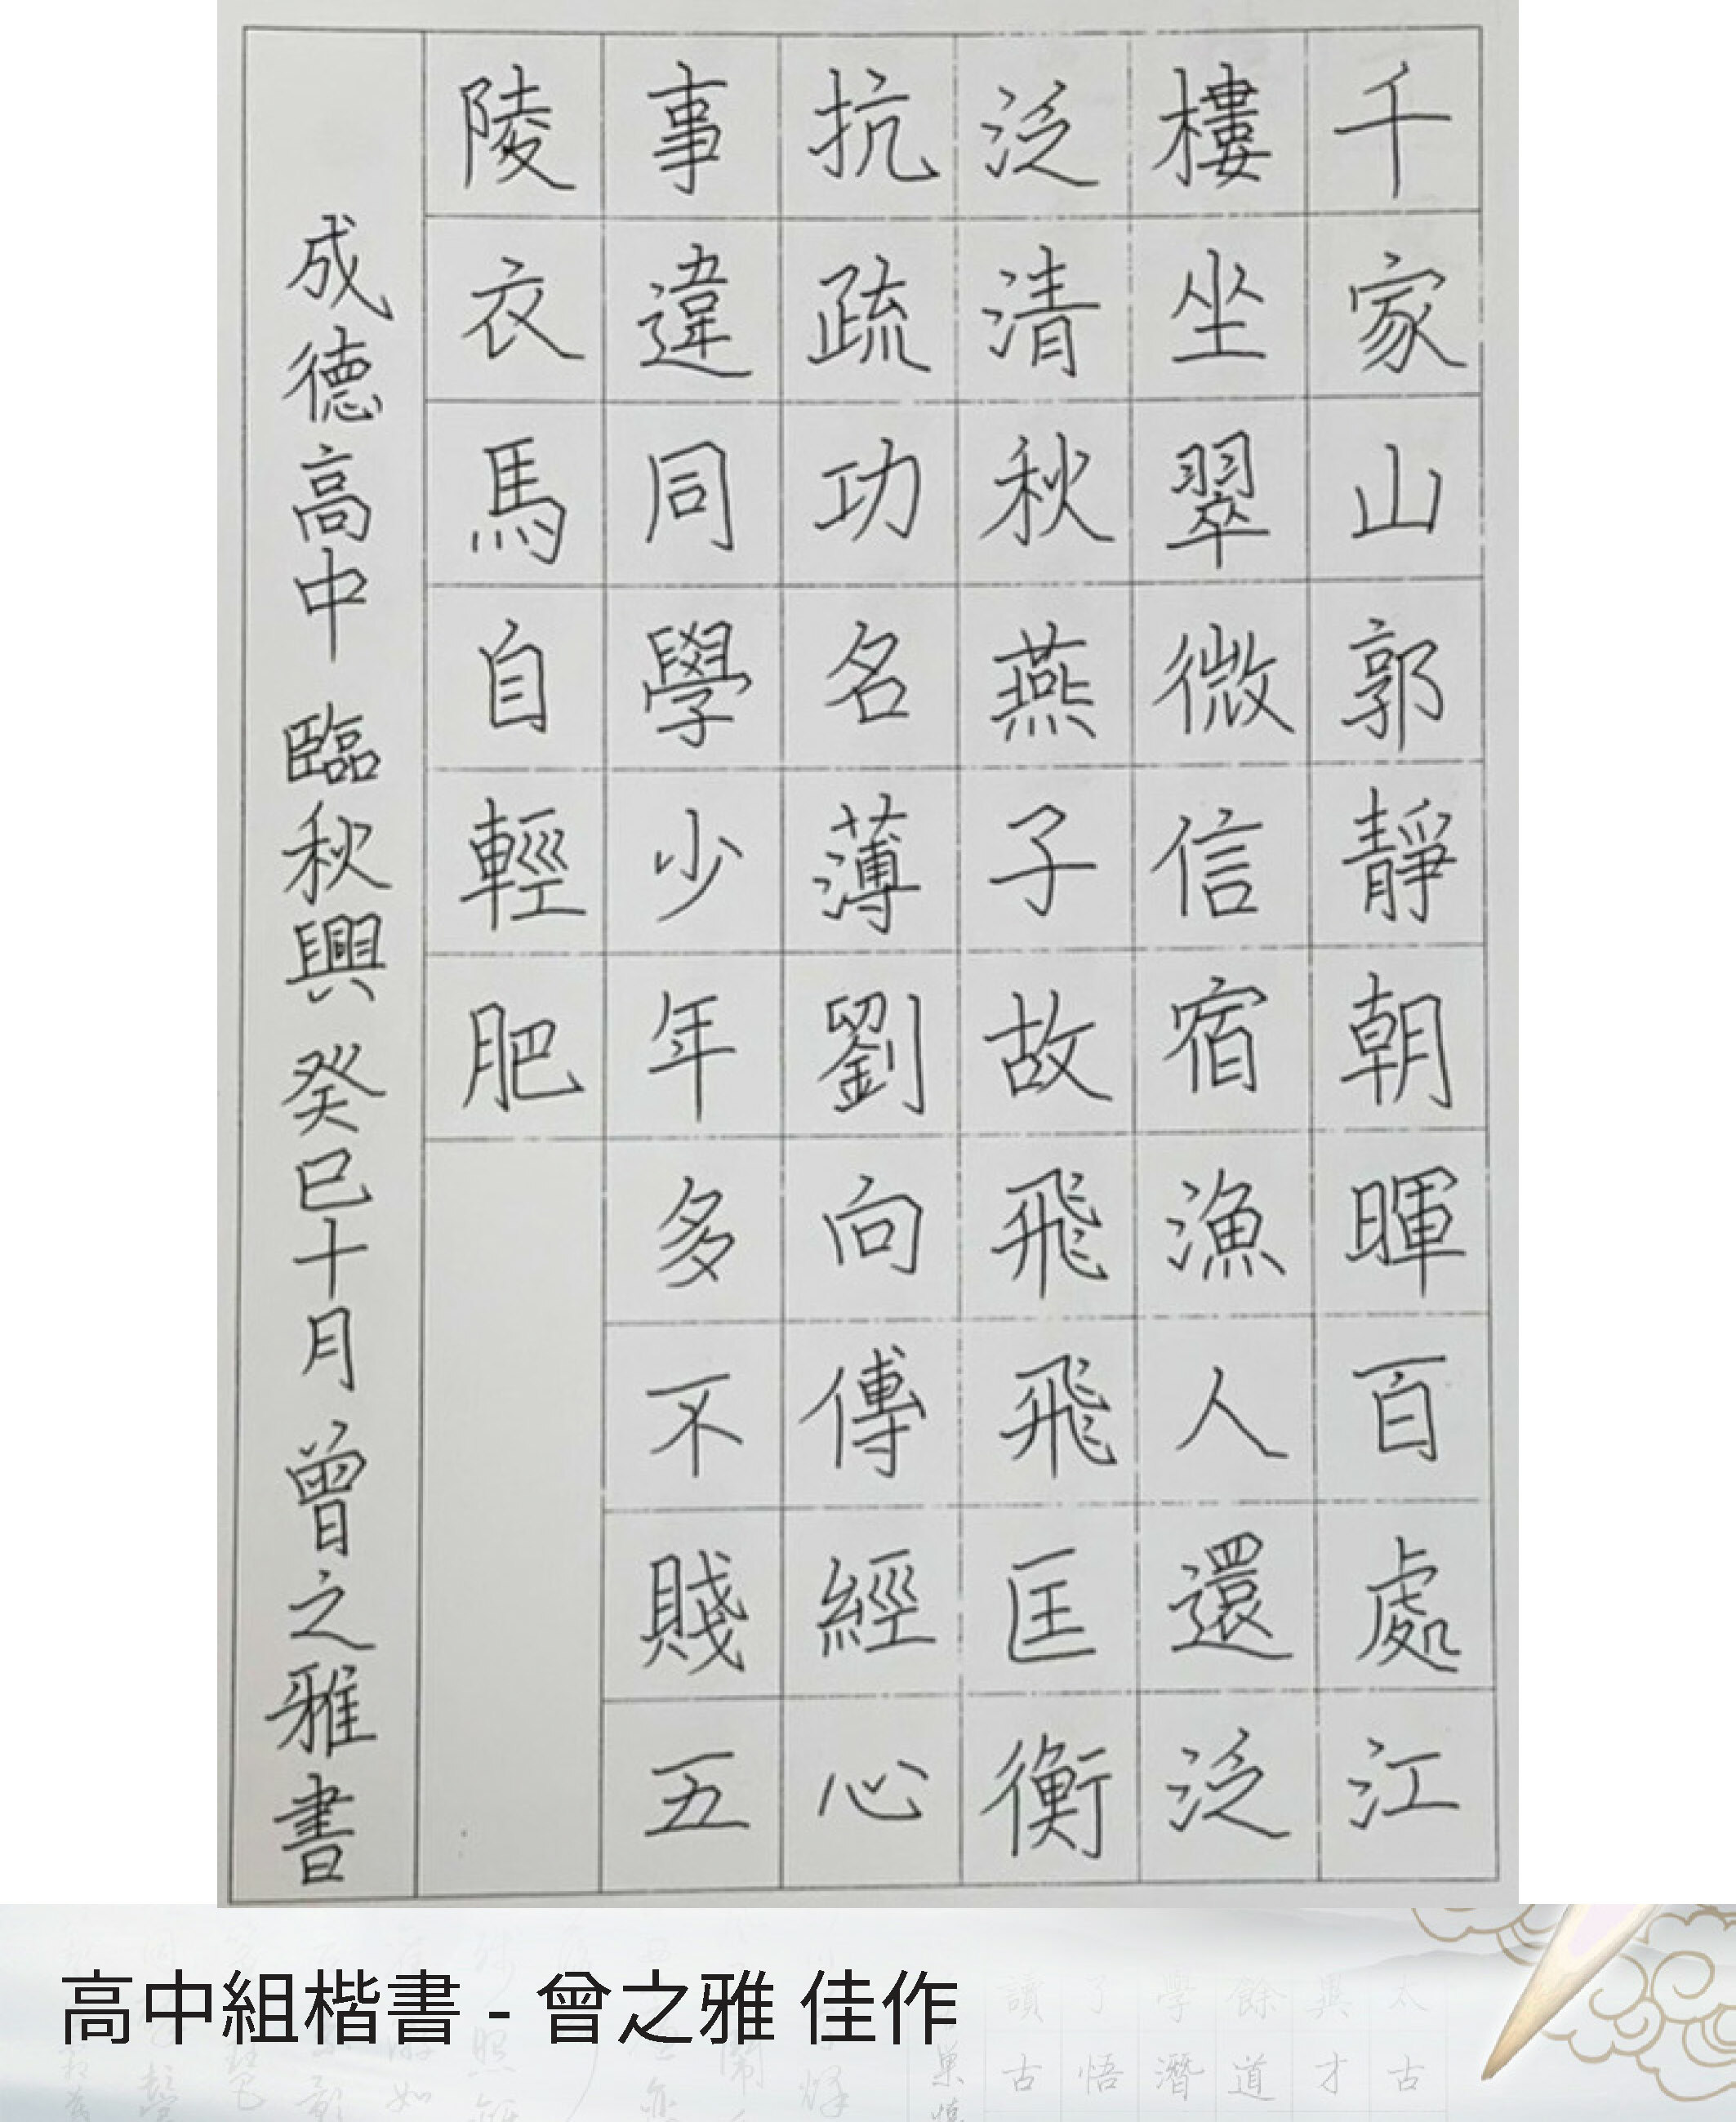 千家山郭靜朝暉百處江
樓坐翠微信宿漁人還泛
泛清秋燕子故飛飛匡衡
抗疏功名薄劉向傳經心
事違同學少年多不賤五
陵衣馬自輕肥
成德高中 臨秋興 癸巳十月 曾之雅書
高中組楷書 - 曾之雅 佳作